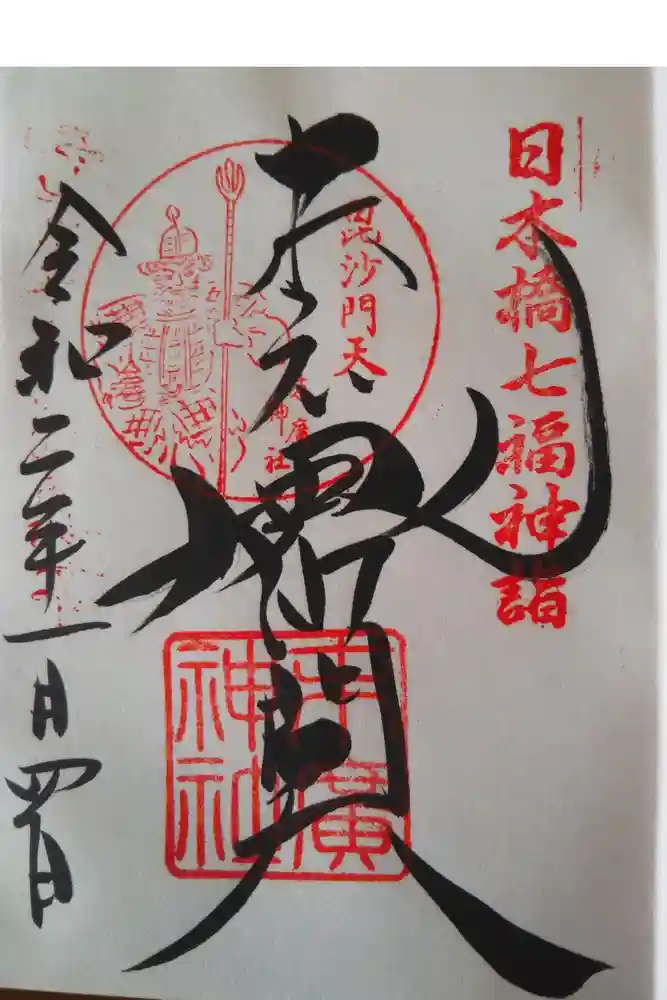 日本橋七福神詣
毘沙門天
末廣
神社
末廣
神社
令和二年一月四日